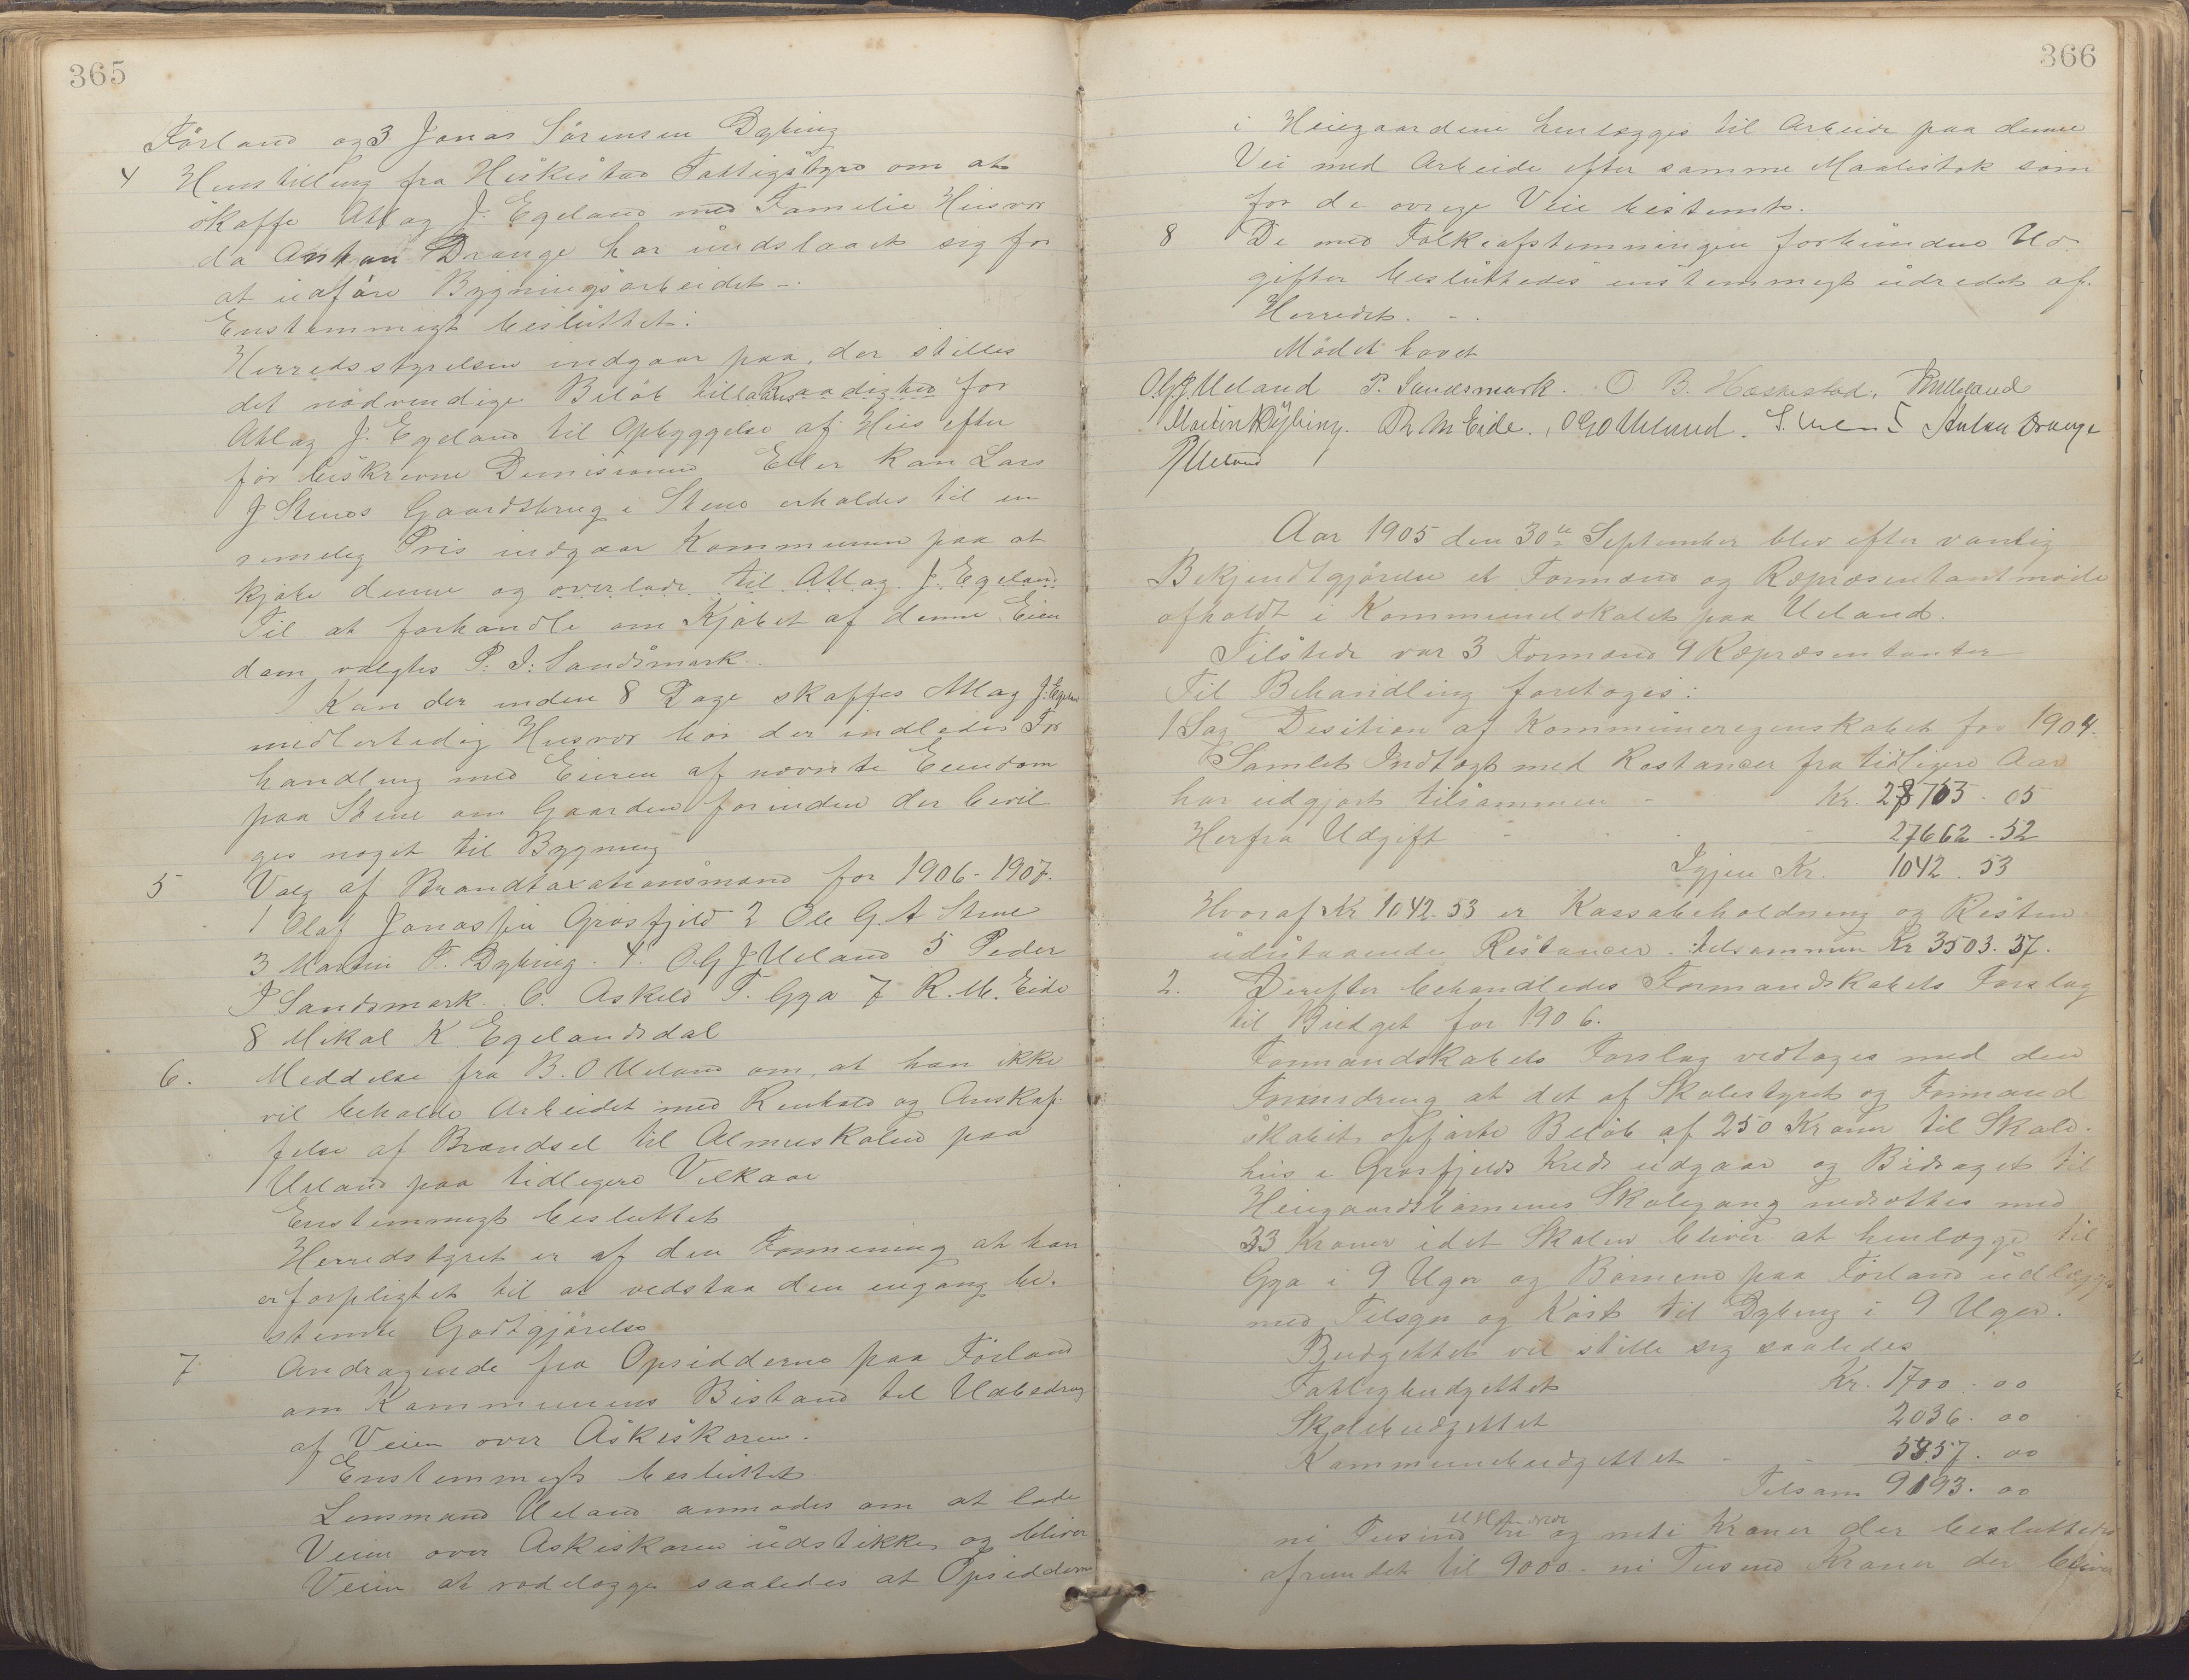 365
Förland og 3 Jonas Sörensen Dybing
4 Henstilling fra Heskestad Fattigstyre om at
skaffe Atlag J. Egeland med Familie Husvær
da Anton Drange har undslaaet sig for
at udföre Bygningsarbeidet -.
Enstemmigt besluttet:
Herredsstyrelsen indgaar paa, der stilles
det nödvendige Belöb till Raadighed for
Atlag J. Egeland til Opbyggelse af Hus efter
för beskrevne Demisioner Eller kan Lars
J Stenes Gaardsbrug i Stene erholdes til en
rimelig Pris indgaar Kommunen paa at
kjöbe denne og overlade til Atlag J. Egeland.
Til at forhandle om Kjöbet af denne Eien
dom valgtes P. J. Sandsmark.
Kan der inden 8 Dage skaffes Atlag J. Egeland
midlertidig Husvær bör der indledes For
handling med Eieren af nævnte Eiendom
paa Stene om Gaarden forinden der bevil
ges noget til Bygning
5 Valg af Brandtaxationsmænd for 1906-1907.
1 Olaf Jonassen Grösfjeld 2 Ole G. A Stene
3 Martin T. Dybing. 4. O. G J Ueland 5 Peder
J Sandsmark. 6. Askild T. Gya 7 R. M. Eide
8 Mikal K Egelandsdal
6. Meddelse fra B. O Ueland om, at han ikke
vil beholde Arbeidet med Renhold og Anskaf
felse af Brændsel til Almueskolen paa
Ueland paa tidligere Vilkaar
Enstemmigt besluttet
Herredstyret er af den Formening at han
er forpligtet til at vedstaa den engang be-
stemte Godtgjörelse
7 Andragende fra Opsidderne paa Förland
om Kommunens Bistand til Udbedring
af Veien over Askiskaren.
Enstemmigt besluttet
Lensmand Ueland anmodes om at lade
Veien over Askiskaren udstikke, og bliver
Veien at rodelægge saaledes at Opsidderne
366
i Heiegaardene henlægges til Arbeide paa denne
Vei med Arbeide efter samme Maalestok som
for de övrige Veie bestemt.
8 De med Folkeafstemningen forbundne Ud-
gifter besluttedes enstemmigt udredet af
Herredet. -.
Mödet hævet
O. G. J. Ueland P. Sandsmark. O. B. Hæskestad.
Martin Dybing. R M Eide. O G O Ueland. Anton Drange
Ueland
Aar 1905 den 30te September blev efter vanlig
Bekjendtgjörelse et Formænd og Repræsentantmöde
afholdt i Kommunelokalet paa Ueland.
Tilstede var 3 Formænd 9 Repræsentanter
Til Behandling foretoges:
1 Sag Desition af Kommuneregnskabet for 1904.
Samlet Indtægt med Restancer fra tidligere Aar
har udgjort tilsammen - Kr. 28705-05
Herfra Udgift - 27662.52
Igjen Kr. 1042.53
Hvoraf Kr 1042.53 er Kassabeholdning og Resten
udestaaende Restancer. tilsammen Kr 3503.37.
2. Derefter behandledes Formandskabets Forslag
til Budget for 1906.
Formandskabets Forslag vedtoges med den
Forandring at det af Skolestyret og Formand
skabet opförte Belöb af 250 Kroner til Skole-
hus i Grösfjelds Kreds udgaar og Bidraget til
Heiegaardsbörnenes Skolegang nedsættes med
33 Kroner idet Skolen bliver at henlægge til
Gya i 9 Uger og Börnene paa Förland udlægges
med Tilsyn og Kost til Dybing i 9 Uger.
Budgettet vil stille sig saaledes
Fattigbudgettet Kr. 1700.00
Skolebudgettet 2036.00
Kommunebudgettet - 5457.00
Tilsam 9193.00
et Hundrede
ni Tusind tre og niti Kroner der besluttedes
afrundet til 9000- ni Tusind Kroner der bliver